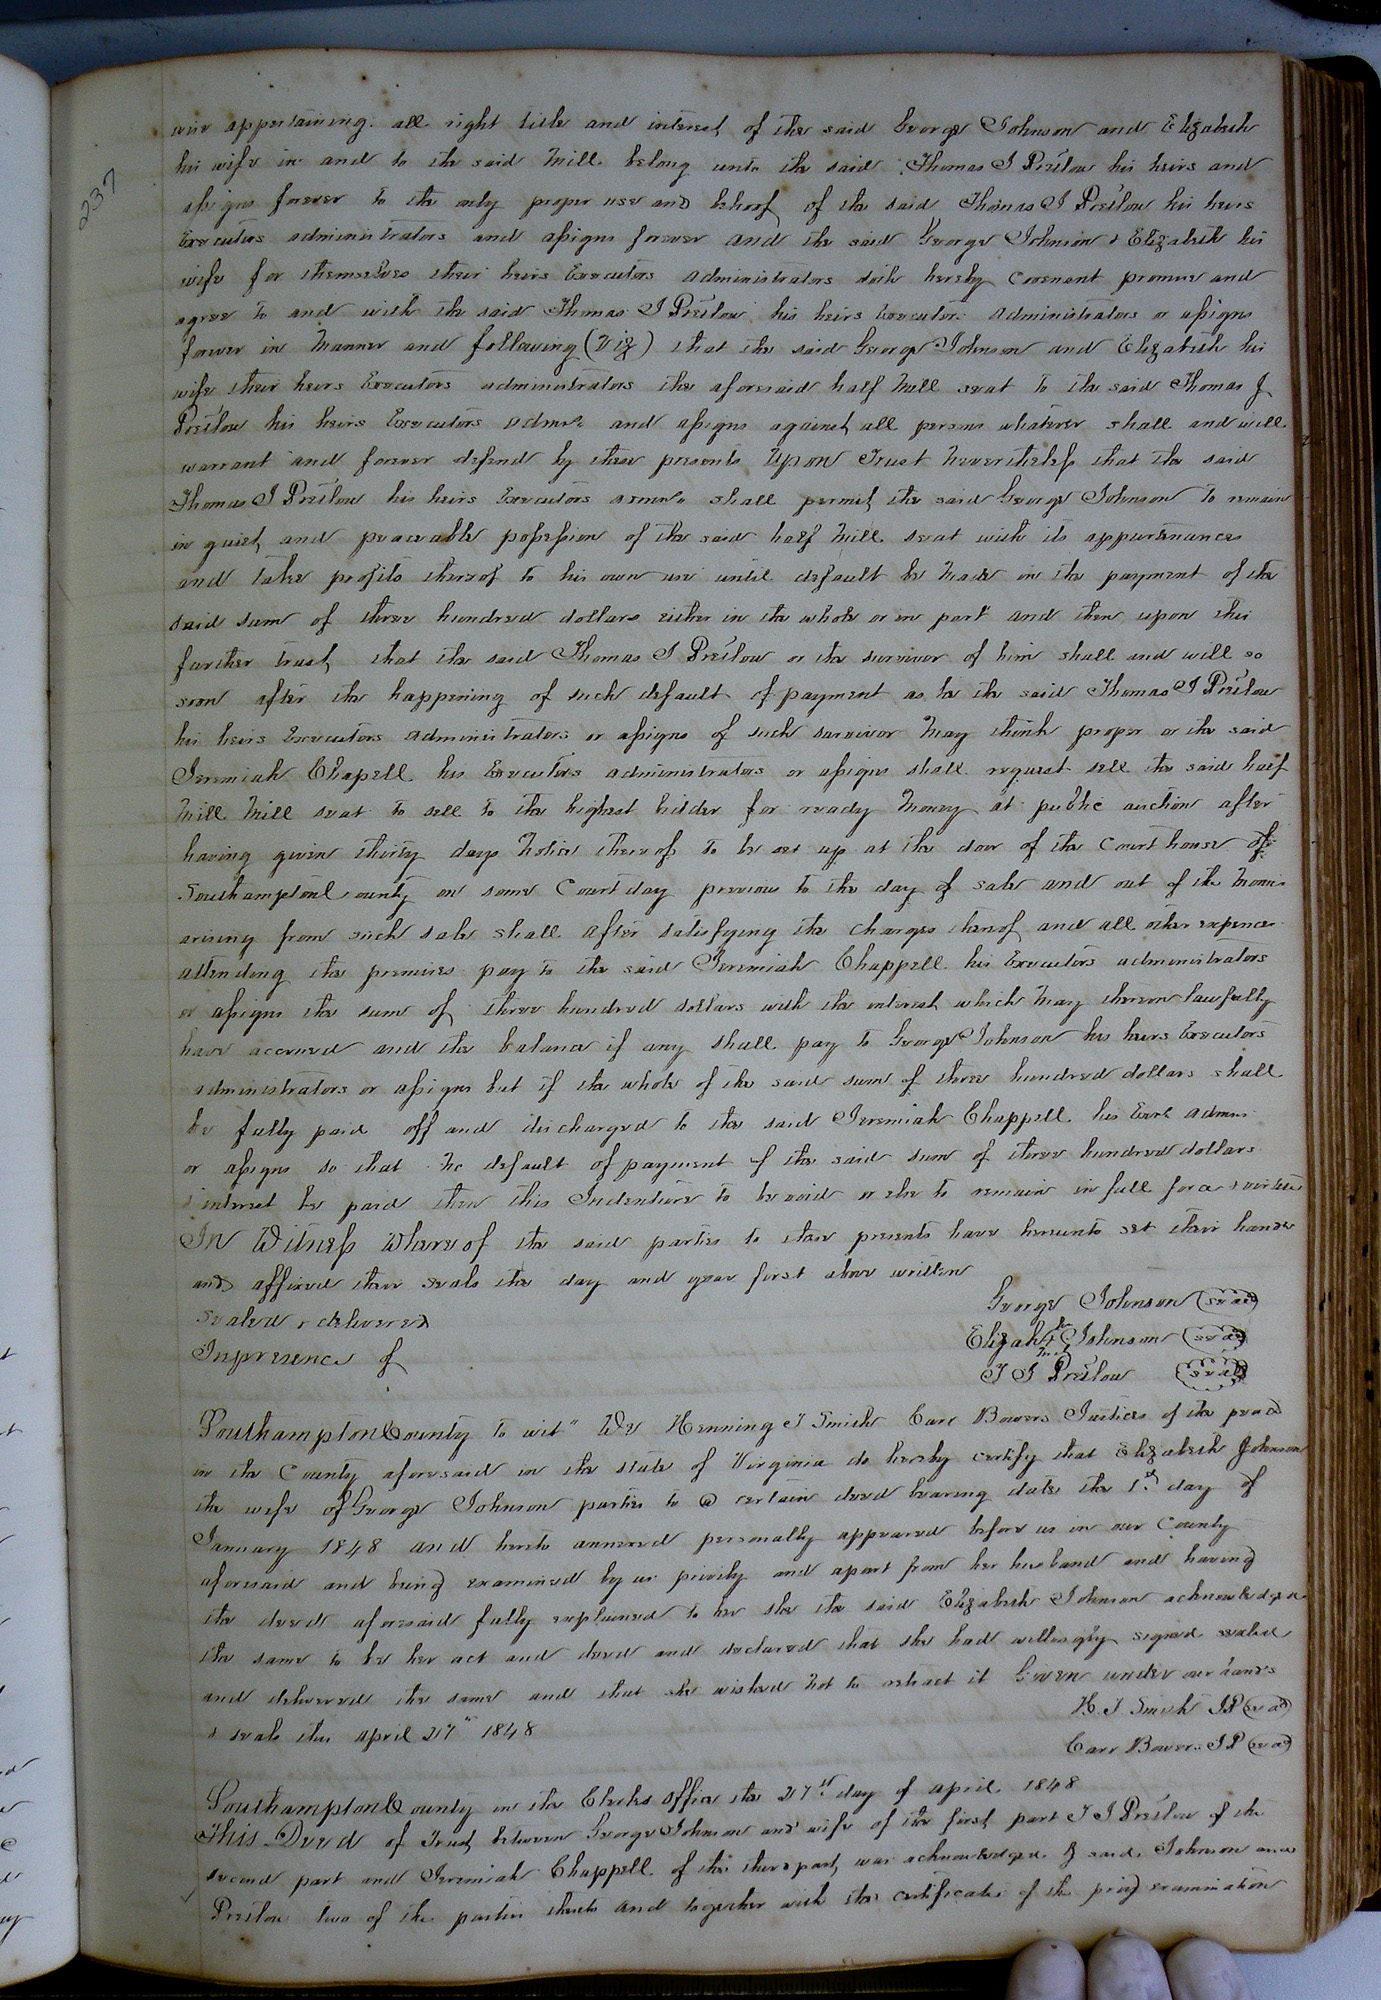 237
wise appertaining. all right title and interest of the said George Johnson and Elizabeth
his wife in and to the said Mill belong unto the said Thomas J Pretlow his heirs and
assigns forever to the only proper use and behoof of the said Thomas J Pretlow his heirs
Executors administrators and assigns forever and the said George Johnson & Elizabeth his
wife for themselves their heirs Executors administrators doth hereby Covenant promise and
agree to and with the said Thomas J Pretlow his heirs Executors administrators or assigns
forever in Manner and following (Viz) that the said George Johnson and Elizabeth his
wife their heirs Executors administrators the aforesaid half Mill seat to the said Thomas J
Pretlow his heirs Executors admrs and assigns against all persons whatever shall and will
warrant and forever defend by these presents Upon Trust Nevertheless that the said
Thomas J Pretlow his heirs Executors admrs shall permit the said George Johnson to remain
in quiet and peaceable possession of the said half Mill seat with its appurtenances
and take profits thereof to his own use until default be Made in the payment of the
said sum of three hundred dollars either in the whole or in part and then upon this
further trust that the said Thomas J Pretlow or the survivor of him shall and will so
soon after the happening of such default of payment as he the said Thomas J Pretlow
his heirs Executors administrators or assigns of such survivor May think proper or the said
Jeremiah Chapell his Executors administrators or assigns shall request sell the said half
Mill Mill seat to sell to the highest bidder for ready Money at public auction after
having given thirty days Notice thereof to be set up at the door of the Court house of
Southampton County on some Court day previous to the day of sale and out of the Monies
arising from such sale shall after satisfying the charges thereof and all other expences
attending the premises pay to the said Jeremiah Chappell his Executors administrators
or assigns the sum of three hundred dollars with the interest which May thereon lawfully
have accrued and the balance if any shall pay to George Johnson his heirs Executors
administrators or assigns but if the whole of the said sum of three hundred dollars shall
be fully paid off and discharged to the said Jeremiah Chappell his Exrs admrs
or assigns so that No default of payment of the said sum of three hundred dollars
& interest be paid then this Indenture to be void or else to remain in full force & virtue
In Witness Whereof the said parties to these presents have hereunto set their hands
and affixed their seals the day and year first above written
George Johnson (seal)
Sealed & delivered
Elizabeth Johnson (seal)
In presence of
T J Pretlow (seal)
Southampton County to wit" We Henning T Smith Carr Bowers Justices of the peace
in the County aforesaid in the state of Virginia do hereby certify that Elizabeth Johnson
the wife of George Johnson parties to a certain deed bearing date the 1st day of
January 1848 and hereto annexed personally appeared before us in our County
aforesaid and being examined by us privily and apart from her husband and having
the deed aforesaid fully explained to her she the said Elizabeth Johnson acknowledged
the same to be her act and deed and declared that she had willingly signed sealed
and delivered the same and that she wished Not to retract it Given under our hands
& seals this april 21st 1848
H. T. Smith JP (seal)
Carr Bowers JP (seal)
Southampton County in the Clerks office the 21st day of april 1848
This Deed of Trust between George Johnson and wife of the first part T J Pretlow of the
second part and Jeremiah Chappell of the third part was acknowledged by said Johnson and
Pretlow two of the parties thereto and together with the certificate of the privy examination